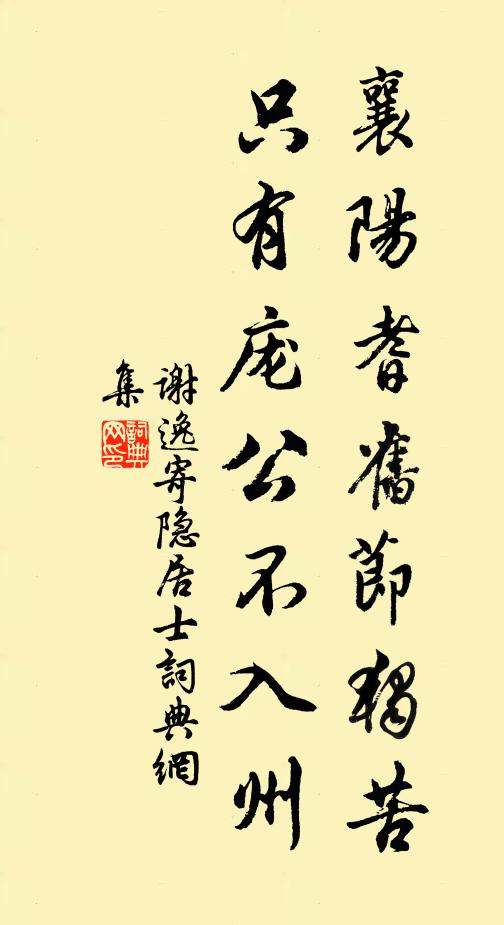 襄陽耆舊節獨苦
只有庞公不入州
谢逸寄隐居士詞典網
集
詞典
网印